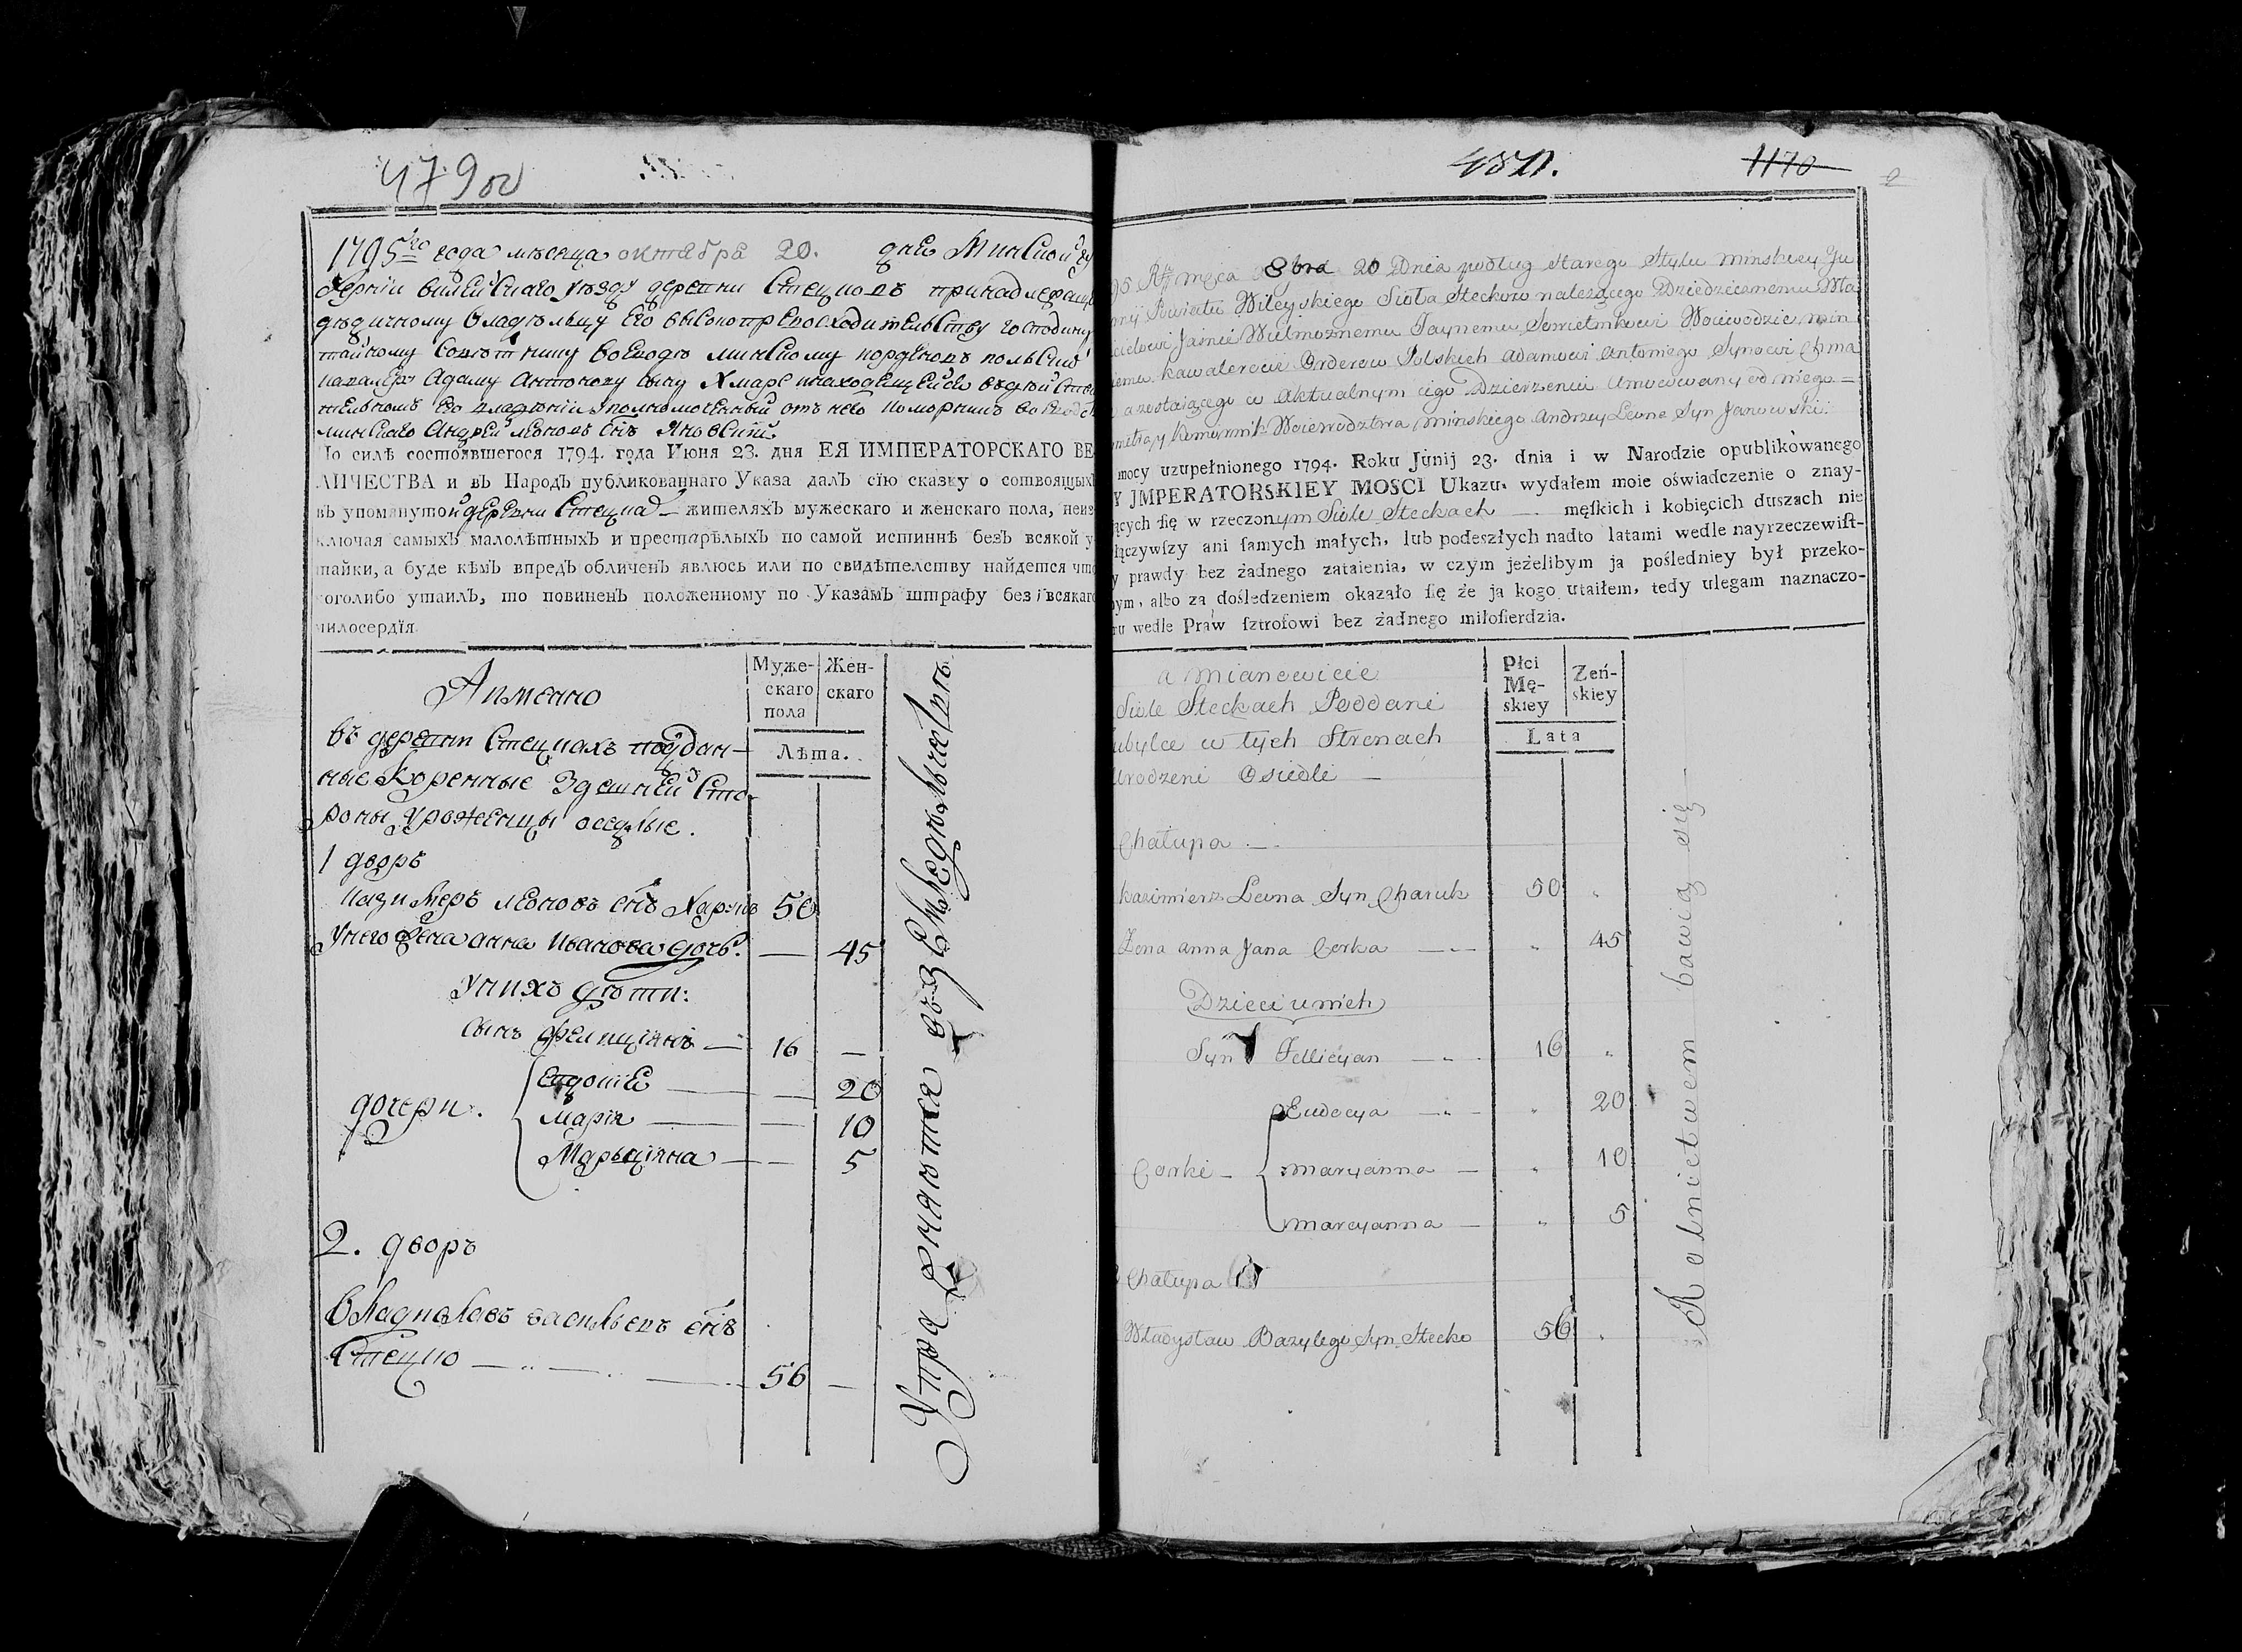 479об
1795го года месяца октебра 20. дне Минской гу
берніи вилейскаго уезду деревни Стецковъ принадлежаще
дедичному владельцу Его высокопревосходительству господину
тайному советнику воеводе минскому иорденовъ польских
кавалеру Адаму Антонову сыну Хмаре инаходещейсе въдействи
тельномъ его владеніи уполномоченный отъ него коморникъ воевод
минскаго Андрей леоновъ снъ Яновскій
По силѣ состоявшегося 1794. года Июня 23. дня ЕЯ ИМПЕРАТОРСКАГО ВЕ
ЛИЧЕСТВА и въ Народъ публикованнаго Указа далъ сїю сказку о сотвоящыхъ
въ упомянутой деревни Стецках — жителяхъ мужескаго и женскаго пола, неиз
ключая самыхъ малолѣтныхъ и престарѣлыхъ по самой истиннѣ безъ всякой у
тайки, а буде кѣмъ впредъ обличенъ явлюсь или по свидѣтелству найдется что
кого либо утаилъ, то повиненъ положенному по Указамъ штрафу безъ всякаго
милосердїя.
Муже-
скаго
пола
Жен-
скаго
Лѣта.
Аимено
въ деревни Стецкахъ поддан—
ные Коренные Здешней Сто
роны уроженцы оседлые.
1 дворъ
Казимеръ леоновъ снъ Харукъ 50
Унего жена анна Иванова дочь. — 45
Унихъ дети:
сынъ фелиціянъ — 16 —
дочери.
Евдотья — 20
Марія — 10
Марціяна — 5
2. дворъ
Владиславъ васильевъ снъ
Стецко — 56 —
Упражняютсе возземледельчестве
480.
1170
2
95 Rку męca 8bra 20 Dnia podług starego Stylu minskiey Gu
nij Powiatu Wileyskiego Sioła Steckow należącego Dziedzicznemu Wła
cielowi Jaśnie Wielmożnemu Taynemu Sowietnikowi Woiewodzie min
iemu kawalerowi Orderow Polskich adamowi antoniego Synowi Chma
a zostaiącego w aktualnym iego Dzierżeniu Umocowany od niego =
ometra y komornik Woiewodztwa minskiego andrzey Leona Syn Janowski
mocy uzupełnionego 1794. Roku Junij 23. dnia i w Narodzie opublikowanego
Y JMPERATORSKIEY MOSCI Ukazu, wydałem moie oświadczenie o znay-
ących się w rzeczonym Siole Steckach — męskich i kobięcich duszach nie
łączywszy ani samych małych, lub podeszłych nadto latami wedle nayrzeczewist-
y prawdy bez żadnego zataienia, w czym jeżelibym ja pośledniey był przeko-
nym, albo za dośledzeniem okazało się że ja kogo utaiłem, tedy ulegam naznaczo-
mu wedle Praw sztrofowi bez żadnego miłosierdzia.
Płci
Mę-
skiey
Zeń-
skiey
Lata
a mianowicie
Siole Steckach Poddani
ubylce w tych Stronach
Urodzeni Osiedli —
Chałupa —
kazimierz Leona Syn Charuk 50 "
Żona anna Jana Corka — " 45
Dzieci u nich
Syn Fellicyan — 16 "
Corki —
Eudocya — " 20
maryanna — " 10
marcyanna — " 5
Chałupa
Władysław Bazylego Syn Stecko 56 "
Rolnictwem bawią się —